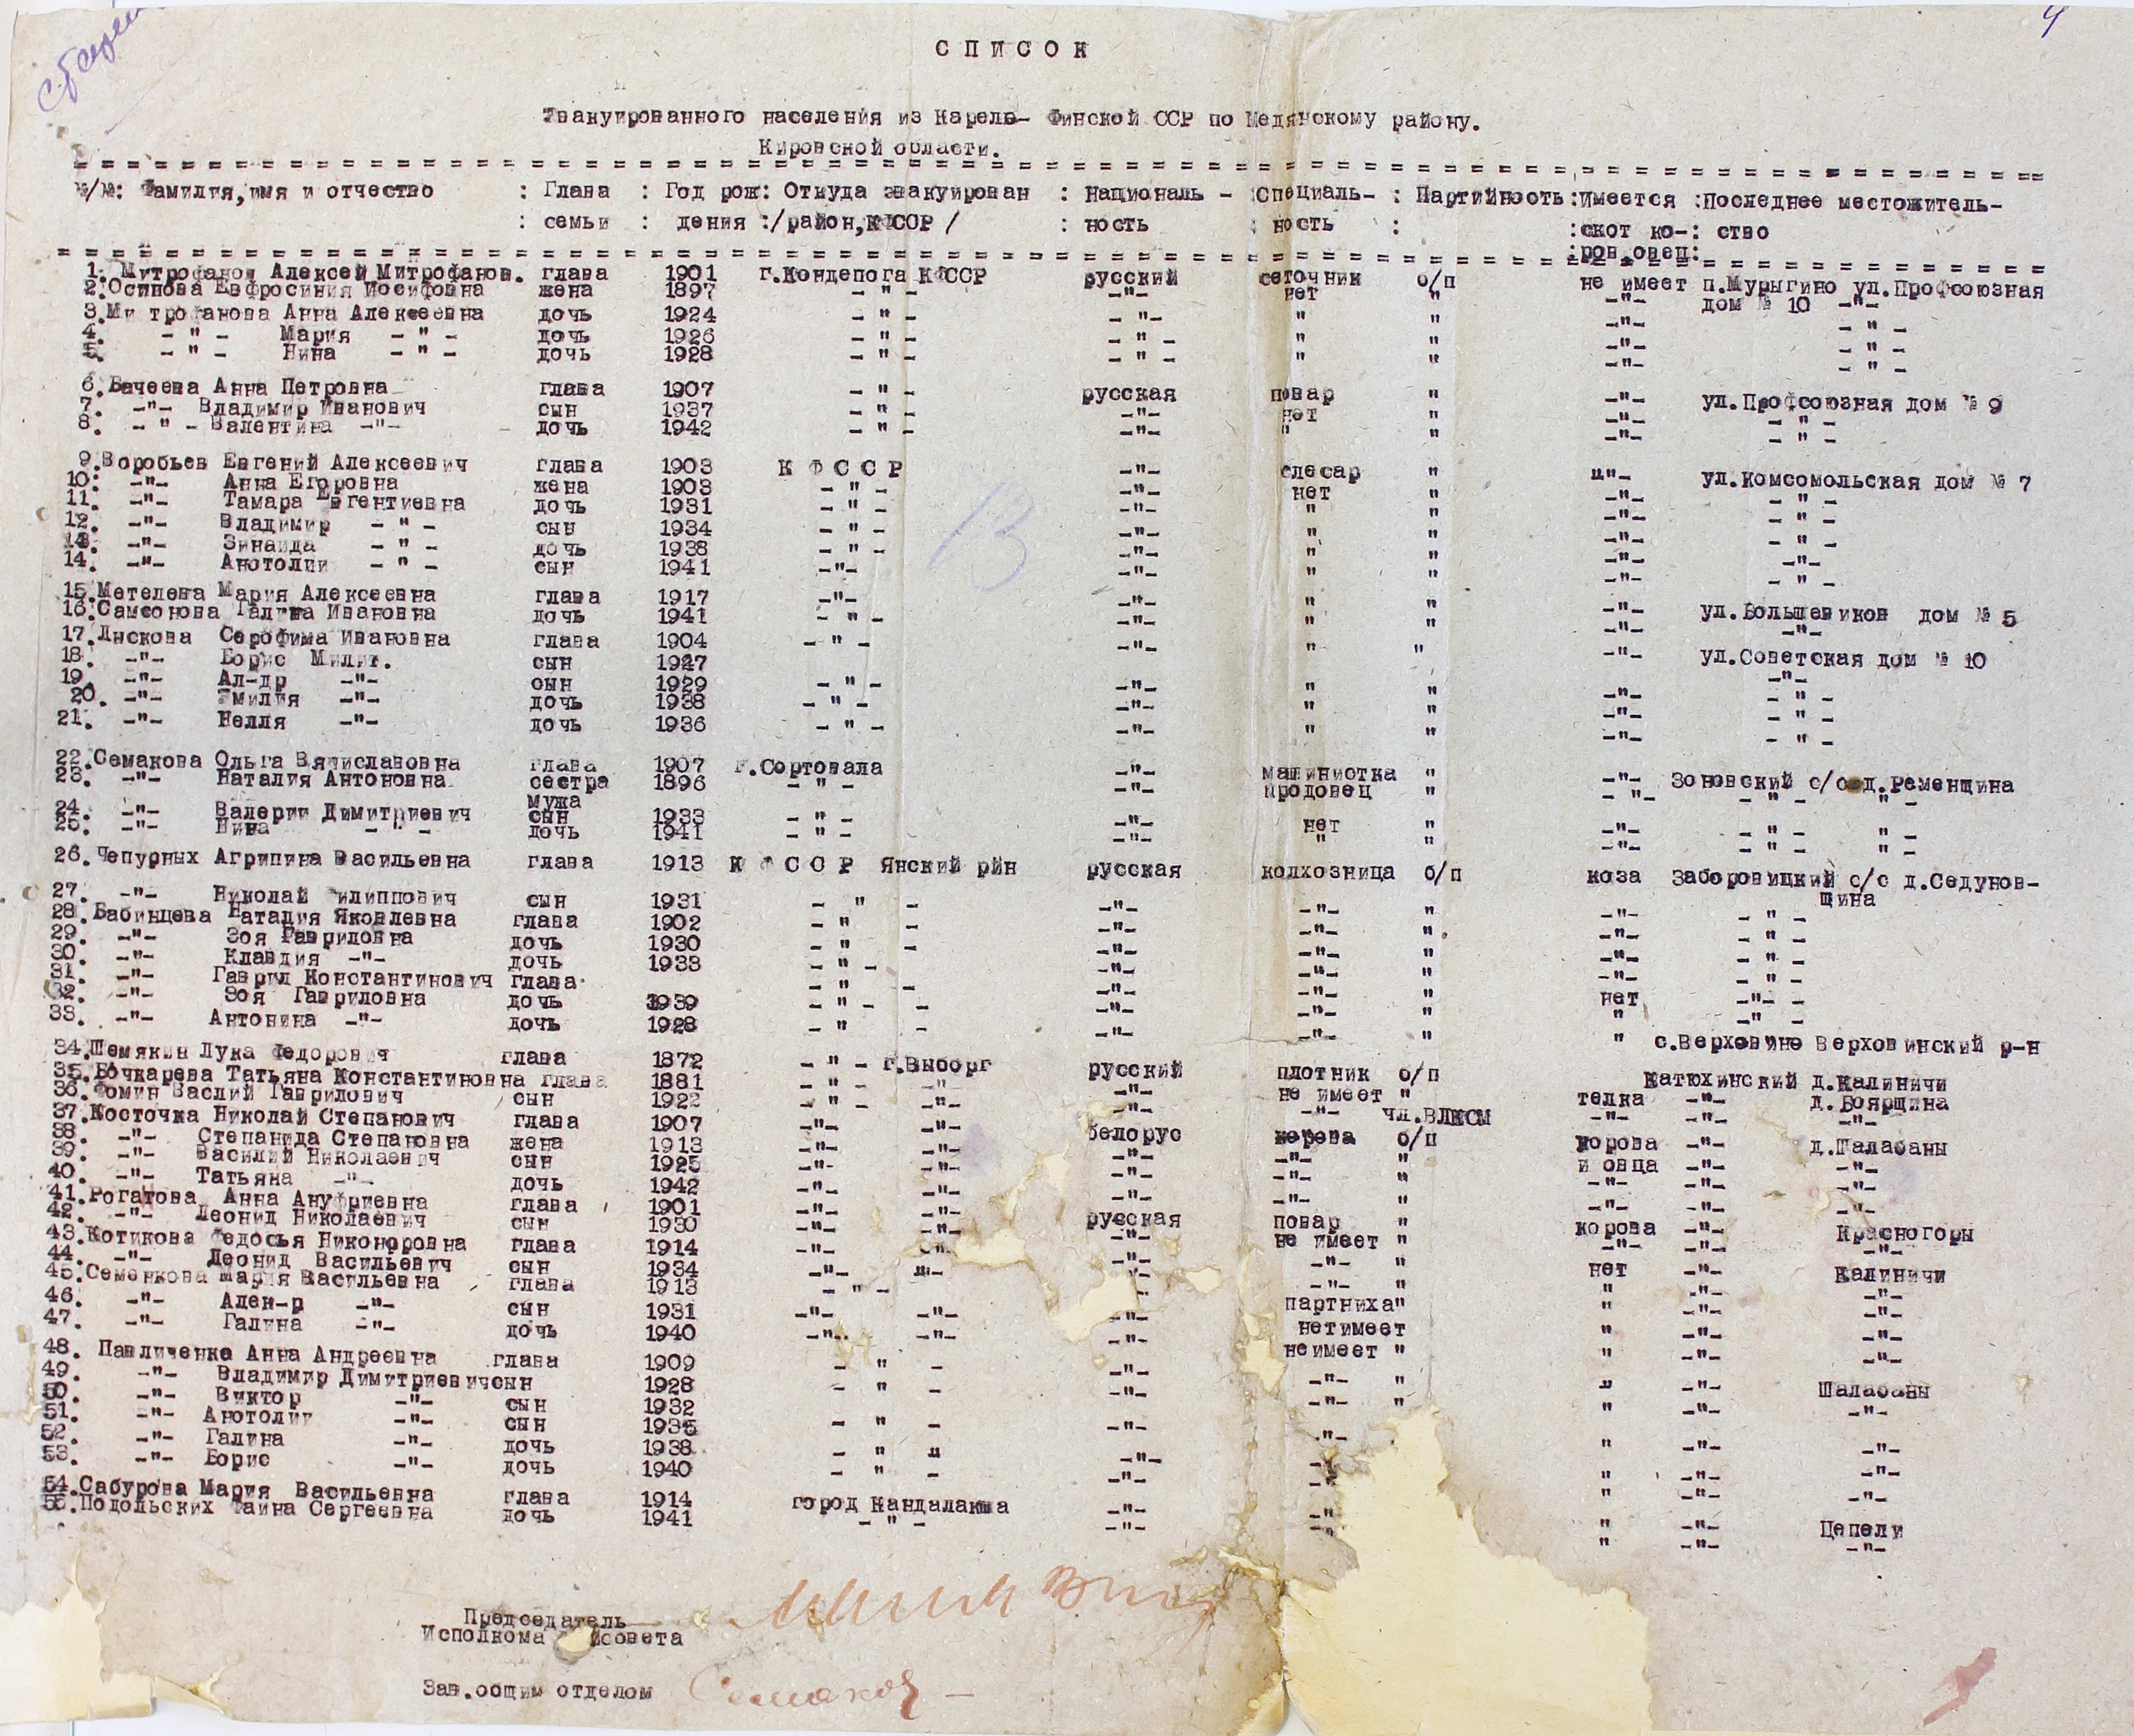 4
С П И С О К
Эвакуированного населения из Карело- Финской ССР по Медянскому району.
Кировской области.
№/№: Фамилия,имя и отчество : Глава : Год рож: Откуда эвакуирован : Националь - :Специаль- : Партийность:Имеется :Последнее местожитель-
: семьи : дения :/район,КФССР / : ность : ность : :скот ко-: ство
:ров,овец:
1. Митрофанов Алексей Митрофанов. глава 1901 г.Кондепога КФССР русский сеточник о/п не имеет п.Мурыгино ул.Профсоюзная
2.Осипова Евфросиния Иосифовна жена 1897 - " - -"- нет " -"- дом № 10 -"-
3.Митрофанова Анна Алексеевна дочь 1924 - " - - "- " " -"- - " -
4. - " - Мария - " - дочь 1926 - " - - " - " " -"- - " -
5. - " - Нина - " - дочь 1928 - " - - " - " " -"- - " -
6.Бачеева Анна Петровна глава 1907 - " - русская повар " -"- ул.Профсоюзная дом № 9
7. -"- Владимир Иванович сын 1937 - " - -"- нет " -"- - " -
8. - " - Валентина -"- дочь 1942 - " - -"- " " -"- - " -
9.Воробьев Евгений Алексеевич глава 1903 К Ф С С Р -"- слесар " ц"- ул.Комсомольская дом № 7
10. -"- Анна Егоровна жена 1903 - " - -"- нет " -"- - " -
11. -"- Тамара Евгентиевна дочь 1931 - " - -"- " " -"- - " -
12. -"- Владимир - " - сын 1934 - " - -"- " " -"- - " -
13. -"- Зинаида - " - дочь 1938 - " - -"- " " -"- -"-
14. -"- Анотолии - " - сын 1941 -"- -"- " " -"- - " -
15.Метелева Мария Алексеевна глава 1917 -"- -"- " " -"- ул.Большевиков дом № 5
16.Самсонова Галина Ивановна дочь 1941 - " - -"- " " -"- -"-
17.Лнскова Серофима Ивановна глава 1904 - " - -"- " " -"- ул.Советская дом № 10
18. -"- Борис Милит. сын 1927 -"-
19. -"- Ал-др -"- сын 1929 - " - -"- " " -"- - " -
20. -"- Эмилия -"- дочь 1938 - " - -"- " " -"- - " -
21. -"- Нелля -"- дочь 1936 - " - -"- " " -"- - " -
22.Семакова Ольга Вячиславовна глава 1907 г.Сортовала -"- машинистка " -"- Зоновский с/сс д.Ременщина
23. -"- Наталия Антоновна сестра 1896 - " - -"- продовец " - "- - " - " -
мужа
24. -"- Валерии Димитриевич сын 1933 - " - -"- нет " -"- - " - " -
25. -"- Нина - " - дочь 1941 - " - -"- " " -"- - " - " -
26.Чепурных Агрипина Васильевна глава 1913 К Ф С С Р Янский рйн русская колхозница о/п коза Заборовицкий с/с д.Седунов-
щина
27. -"- Николай Филиппович сын 1931 - " - -"- -"- " -"- - " -
28.Бабинцева Наталия Яковлевна глава 1902 - " - -"- -"- " -"- - " -
29. -"- Зоя Гавриловна дочь 1930 - " - -"- -"- " -"- - " -
30. -"- Клавдия -"- дочь 1933 - " - -"- -"- " -"- - " -
31. -"- Гаврил Константинович глава - " - -"- -"- " нет -"- -
32. -"- Зоя Гавриловна дочь 1939 - " - -"- -"- " " -"- -
33. -"- Антонина -"- дочь 1928 - " - -"- -"- " " с.Верховино Верховинский р-н
34.Шемякин Лука Федорович глава 1872 - " - г.Выборг русский плотник о/п Катюхинский д.Калиничи
35.Бочкарева Татьяна Константиновна глава 1881 - " - -"- -"- не имеет " телка -"- д.Боярщина
36.Фомин Васлий Гаврилович сын 1922 - " - -"- -"- -"- чл.ВЛКСМ -"- -"- -"-
37.Косточка Николай Степанович глава 1907 -"- -"- белорус корова о/п корова -"- д.Шалабаны
38. -"- Степанида Степановна жена 1913 -"- -"- -"- -"- " и овца -"- -"-
39. -"- Василий Николаевич сын 1925 -"- -"- -"- -"- " -"- -"- -"-
40. -"- Татьяна -"- дочь 1942 -"- -"- -"- -"- " -"- -"- -"-
41.Рогатова Анна Ануфриевна глава 1901 -"- -"- русская повар " корова -"- Красногоры
42. -"- Леонид Николаевич сын 1930 -"- -"- -"- не имеет " -"- -"- -"-
43.Котикова Федосья Никоноровна глава 1914 -"- -"- -"- -"- " нет -"- Калиничи
44. -"- Леонид Васильевич сын 1934 -"- -"- -"- -"- " " -"- -"-
45.Семенкова Мария Васильевна глава 1913 - " - -"- партниха" " -"- -"-
46. -"- Алек-р -"- сын 1931 -"- -"- -"- нетимеет " -"- -"-
47. -"- Галина -"- дочь 1940 -"- -"- -"- неимеет " " -"- -"-
48. Павличенко Анна Андреевна глава 1909 - " - -"- -"- " " -"- Шалабаны
49. -"- Владимир Димитриевичсын 1928 - " - -"- -"- " " -"- -"-
50. -"- Виктор -"- сын 1932
51. -"- Анотолии -"- сын 1935 - " - -"- -"- " -"- -"-
52. -"- Галина -"- дочь 1938 - " " -"- " -"- -"-
53. -"- Борис -"- дочь 1940 - " - -"- " -"- -"-
54.Сабурова Мария Васильевна глава 1914 город Кандалакша -"- -"- " -"- Цепели
55.Подольских Фаина Сергеевна дочь 1941 - " - -"- -"- " -"- -"-
Председатель
Исполкома йсовета
Зав.общим отделом